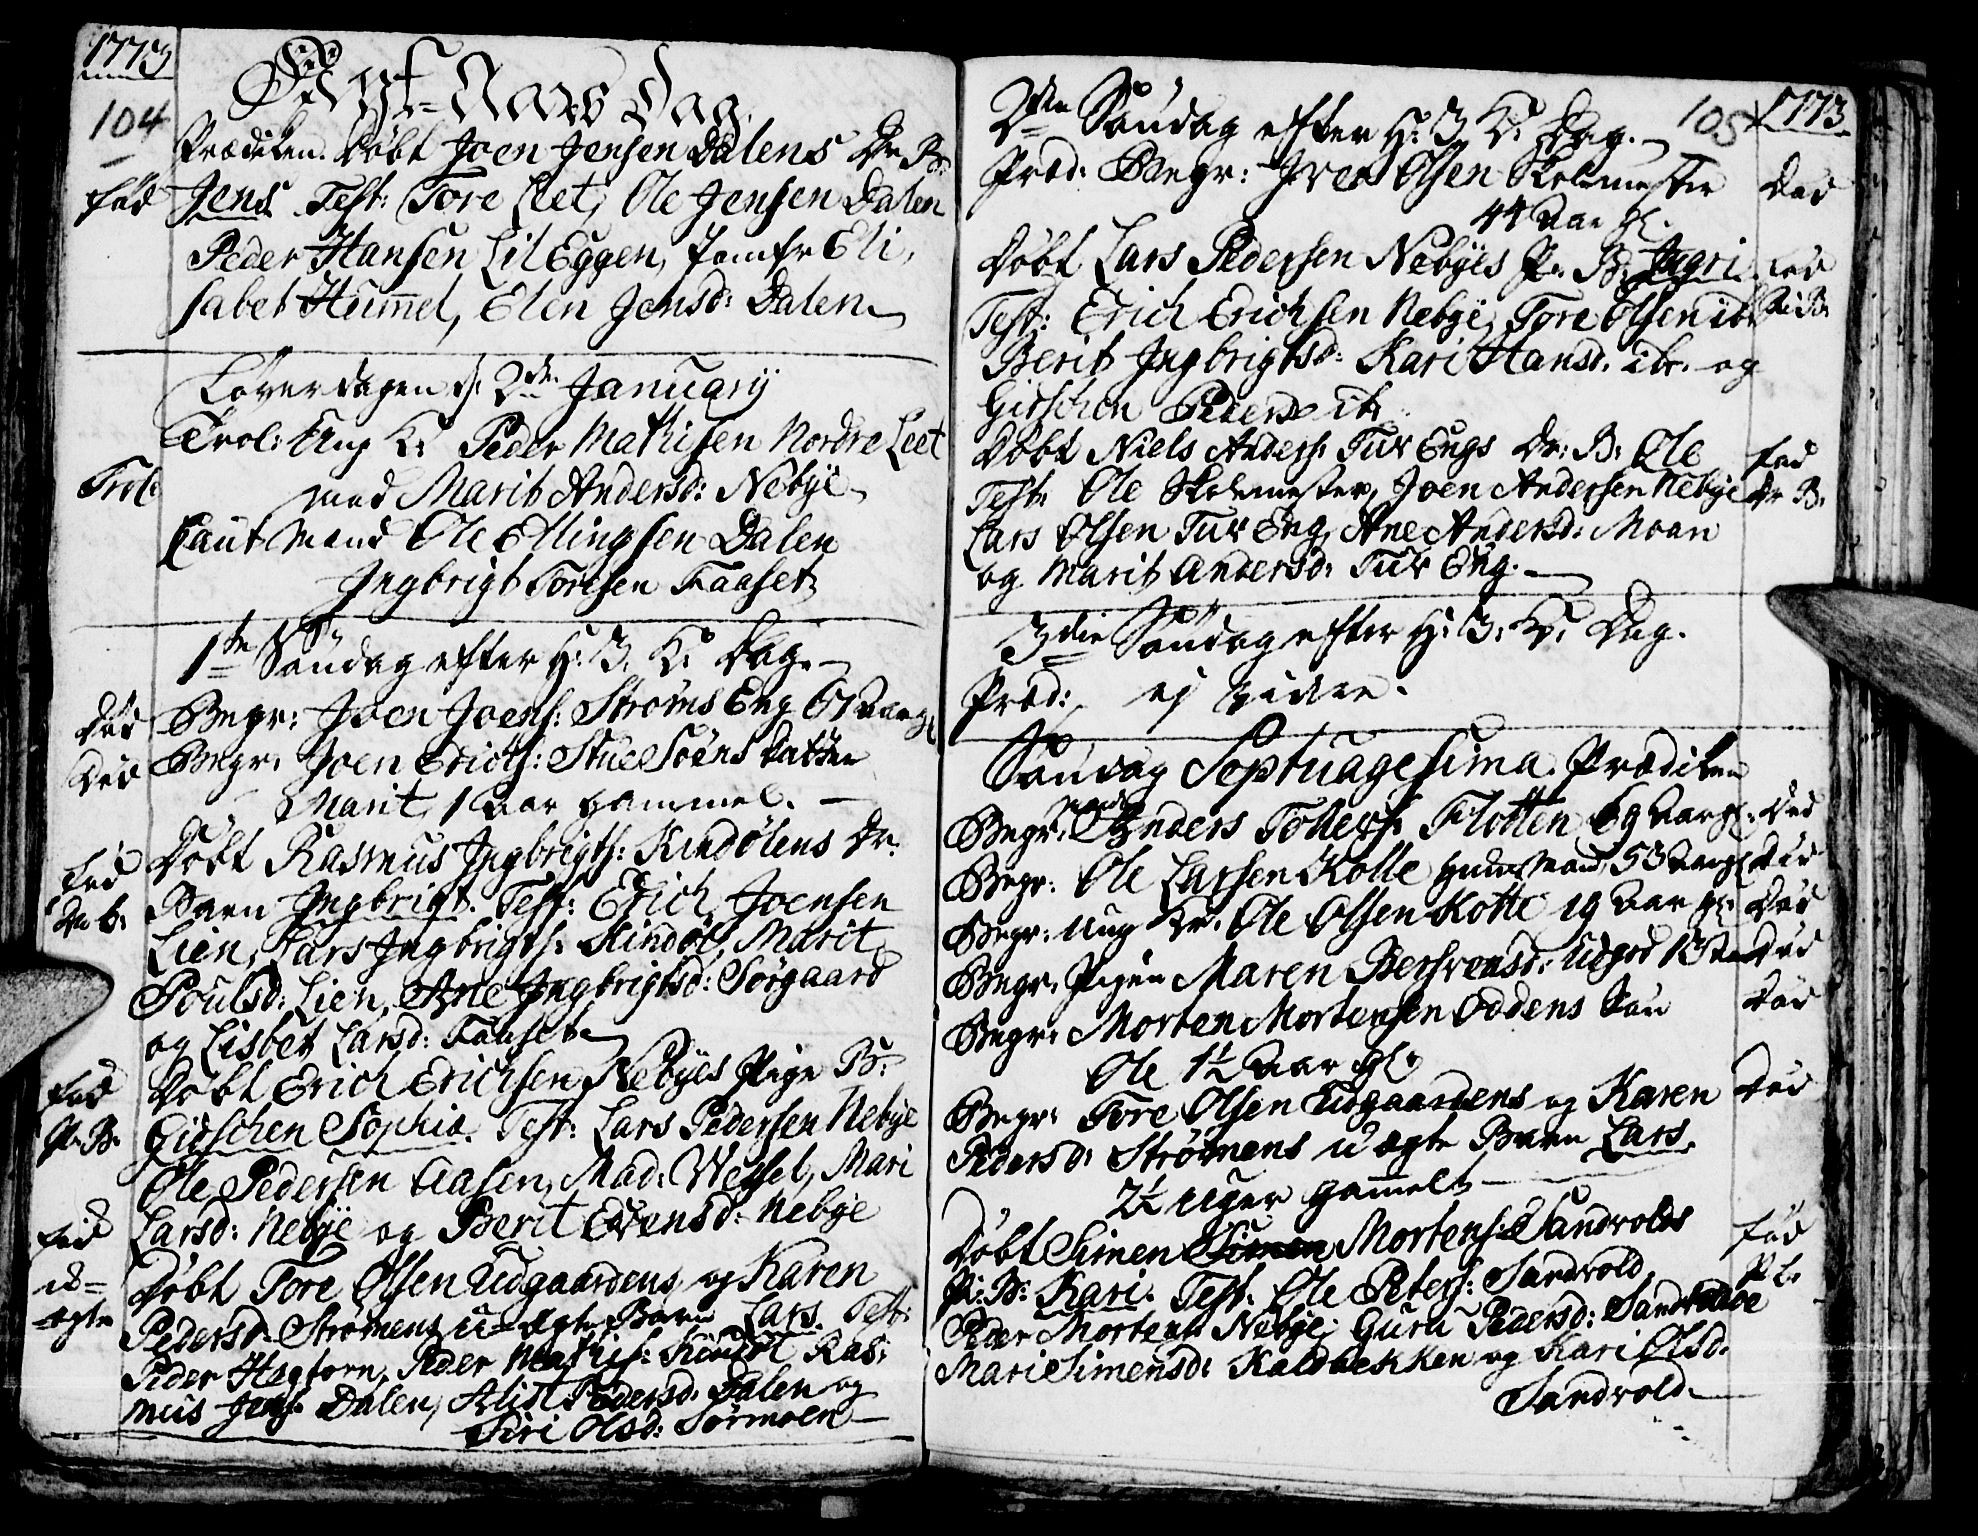 1773
104
Nyt-Aars Dag.
Prædiken. Døbt Joen Jensen Dalens Dr. B.
Fød
Jens Test: Tore Leet, Ole Jensen Dalen
Peder Hansen Lil Eggen, Jomfr Eli,
sabet Hummel, Elen Jensd: Dalen
Løverdagen d. 2den Januarij
Trol: Ung K: Peder Mathisen Nordre Leet
Trol.
med Marit Andersd: Nebÿe
Caut Mænd Ole Ellingsen Dalen
Ingbrigt Toresen Faaset
1ste Søndag efter H: 3. K: Dag.
Død
Begr: Joen Joens: Strøms Eng 67 Aar gl
Død
Begr: Joen Erichs: Stue Søens Datter
Marit, 1 Aar gammel.
Døbt Rasmus Ingbrigts: Kindølens Dr.
Fød
Dr. b.
Barn Ingbrigt. Test: Erich Joensen
Lien, Lars Ingbrigts: Kindøl, Marit
Poulsd: Lien, Ane Ingbrigtsd: Sørgaard
og Lisbet Larsd: Faaset
Fød
Døbt Erich Erichsen Nebÿes Pige B:
P. B.
Gidschen Sophia. Test: Lars Pedersen Nebÿe
Ole Pedersen Aasen, Mad: Wessel, Mari
Larsd: Nebÿe og Berit Evensd: Nebÿe
Fød
u=
=ægte
Døbt Tore Olsen Udgaardens og Karen
Pedersd: Strømens u-ægte Barn Lars. Test:
Peder Hagtorn, Peder Mathis: Kindøl Ras:
mus Jens: Dalen, Alist Pedersd: Dalen og
Siri Olsd: Sørmoen
105
1773
2den Søndag efter H: 3 K: Dag.
Præd: Begr: Iver Olsen Skolemester
Død
44 Aar gl.
Døbt Lars Pedersen Nebÿes P. B. Ingri
Fød
P: B:
Test: Erich Erichsen Nebÿe, Tore Olsen ib.
Berit Ingbrigtsd: Kari Hansd. ib. og
Gidschen Pedersd ib.
Døbt Niels Anders: Tux Engs Dr: B: Ole
Fød
Dr B.
Test: Ole Skolemester, Joen Andersen Nebÿe
Lars Olsen Tux Eng, Ane Andersd: Moan
og Marit Andersd: Tux Eng.
3die Søndag efter H: 3: K: Dag.
Præd: ej videre.
Søndag Septuagesima. Prædiken
Begr: Anders Tollefs: Flotten 69 Aar gl. Død
Begr: Ole Larsen Kotte 53 Aar gl Død
Begr: Ung Kr: Ole Olsen Kotte 19 Aar gl. Død
Begr: Pigen Maren Bersvensd: Udgrd 13 Aar Død
Begr: Morten Mortensen Oddens Søn
Død
Ole 1½ Aar gl.
Begr: Tore Olsen Udgaardens og Karen
Død
Pedersd: Strømens u ægte Barn Lars.
2½ Uger gammelt
Døbt Simen Mortens: Sandvolds
Fød
P: B: Kari. Test: Ole Peters: Sandvold,
P b.
Peder Mortens: Nebÿe, Guru Pedersd:
Mari Simensd: Kaldbekken og Kari Olsd.
Sandvold